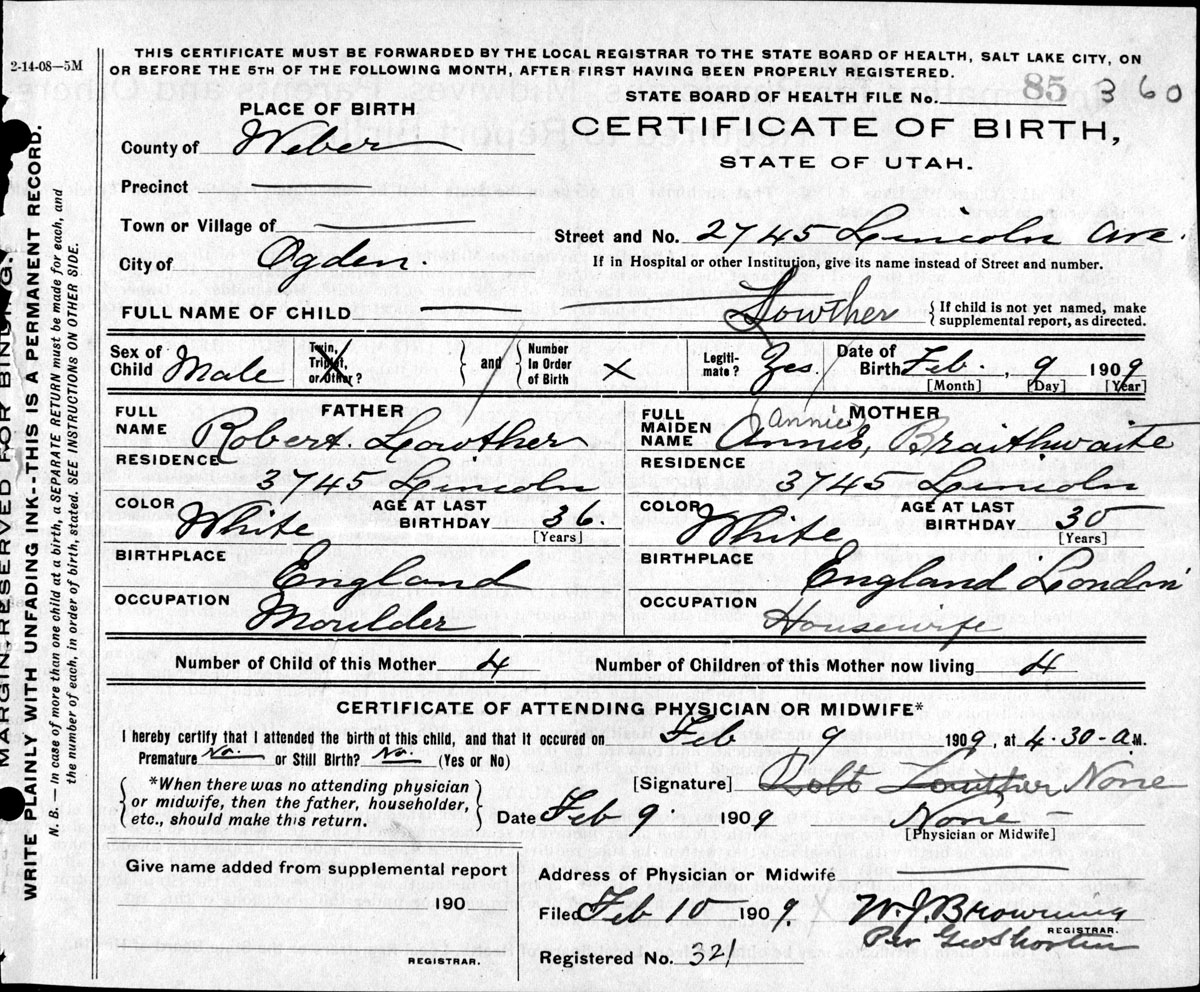 2-14-08—5M
THIS CERTIFICATE MUST BE FORWARDED BY THE LOCAL REGISTRAR TO THE STATE BOARD OF HEALTH, SALT LAKE CITY, ON
OR BEFORE THE 5TH OF THE FOLLOWING MONTH, AFTER FIRST HAVING BEEN PROPERLY REGISTERED.
STATE BOARD OF HEALTH FILE No. 85 360
PLACE OF BIRTH
CERTIFICATE OF BIRTH,
STATE OF UTAH.
County of Weber
Precinct
Town or Village of
Street and No. 2745 Lincoln Ave.
City of Ogden.
If in Hospital or other Institution, give its name instead of Street and number.
FULL NAME OF CHILD Lowther
{ If child is not yet named, make
{ supplemental report, as directed.
Sex of Child Male
Twin, Triplet, or Other?
} and { Number In Order of Birth X
Legiti-mate? Yes.
Date of Birth Feb. 9 1909
[Month] [Day] [Year]
FATHER
FULL NAME Robert. Lowther
RESIDENCE 3745 Lincoln
COLOR White
AGE AT LAST BIRTHDAY 36.
[Years]
BIRTHPLACE England
OCCUPATION Moulder
MOTHER
Annie
FULL MAIDEN NAME Annie, Braithwaite
RESIDENCE 3745 Lincoln
COLOR White
AGE AT LAST BIRTHDAY 30
[Years]
BIRTHPLACE England London
OCCUPATION Housewife
Number of Child of this Mother 4
Number of Children of this Mother now living 4
CERTIFICATE OF ATTENDING PHYSICIAN OR MIDWIFE*
I hereby certify that I attended the birth of this child, and that it occured on Feb 9 1909, at 4-30-a M.
Premature No. or Still Birth? No. (Yes or No)
{ *When there was no attending physician
or midwife, then the father, householder,
etc., should make this return. }
[Signature] Robt Lowther None
Date Feb 9 1909 None
[Physician or Midwife]
Give name added from supplemental report
190
REGISTRAR.
Address of Physician or Midwife
Filed Feb 10 1909. W. J. Browning
REGISTRAR.
Per Geo Shorten
Registered No. 321
MARGIN RESERVED FOR BINDING.
WRITE PLAINLY WITH UNFADING INK--THIS IS A PERMANENT RECORD.
N. B. — In case of more than one child at a birth, a SEPARATE RETURN must be made for each, and
the number of each, in order of birth, stated. SEE INSTRUCTIONS ON OTHER SIDE.